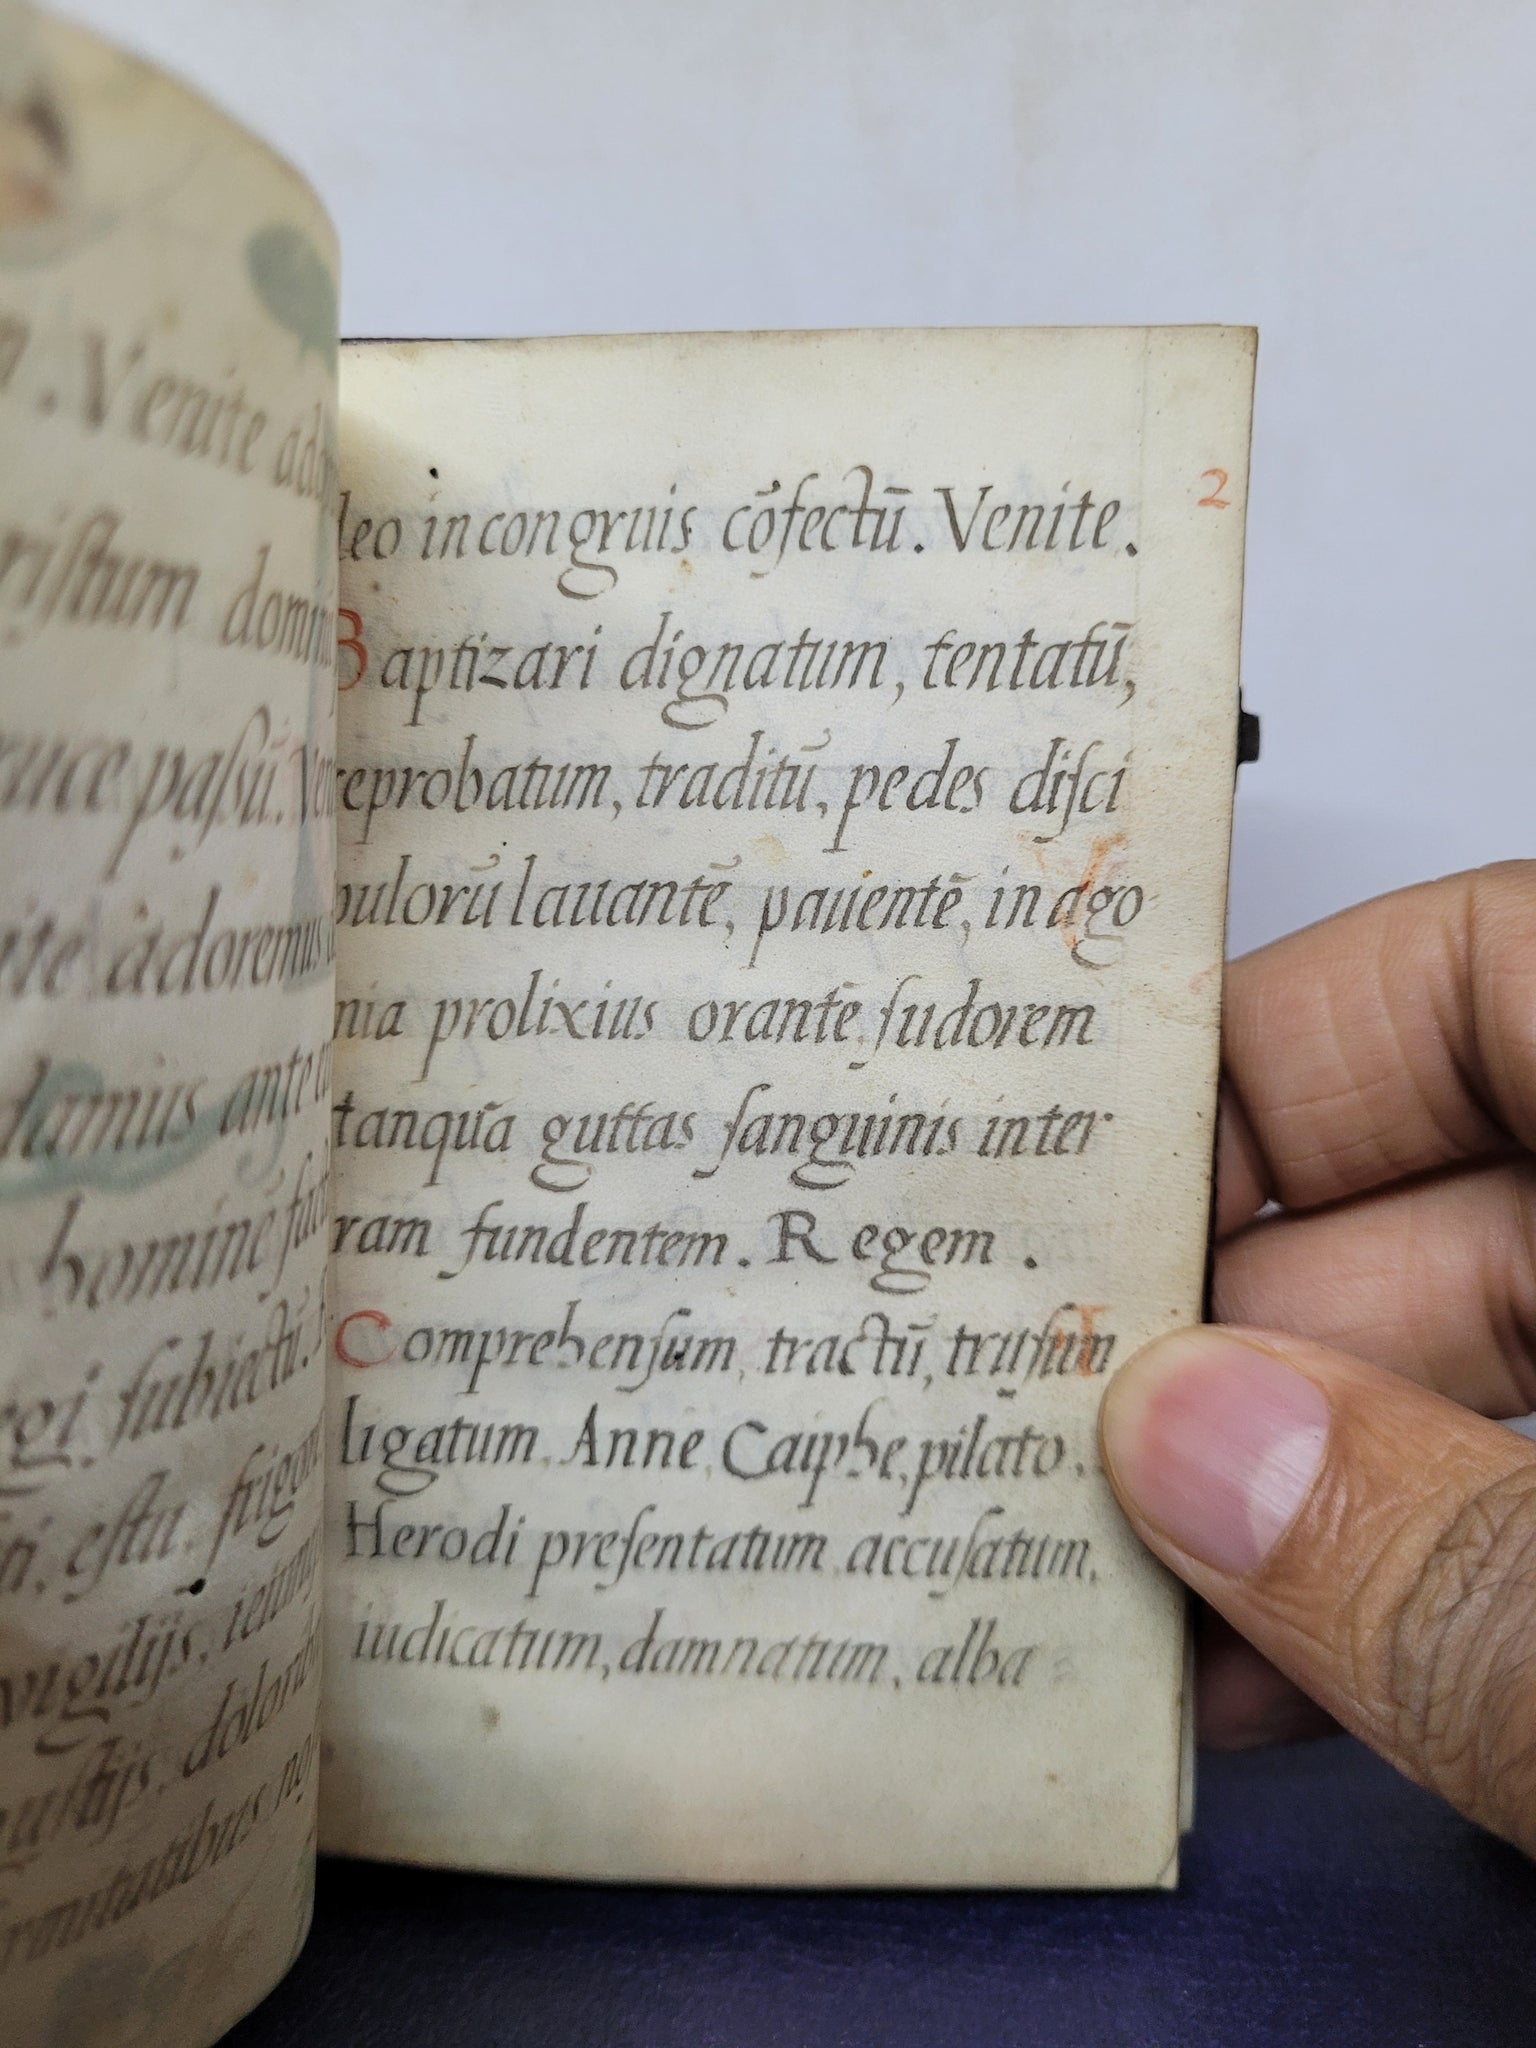 n. Venite ado
ristum domin
ruce passũ. Ven
ite adoremus
damus ante
hominẽ fact
egi subiectũ.
ti. estu. frigor
vigilijs. ieiun
gustijs. dolorib
no
2
leo incongruis cõfectũ. Venite.
Baptizari dignatum, tentatũ,
reprobatum, traditũ, pedes disci
pulorũ lauantẽ, pauentẽ, in ago
nia prolixius orantẽ sudorem
tanquã guttas sanguinis in ter
ram fundentem. Regem.
Comprehensum, tractũ, trusum
ligatum. Anne, Caiphe, pilato.
Herodi presentatum accusatum.
iudicatum, damnatum, alba